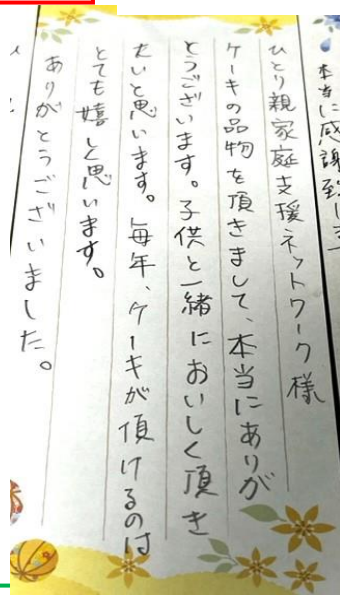 本当に感謝致します
ひとり親家庭支援ネットワーク様
ケーキの品物を頂きまして、本当にありが
とうございます。子供と一緒においしく頂き
たいと思います。毎年、ケーキが頂けるのは
とても嬉しく思います。
ありがとうございました。